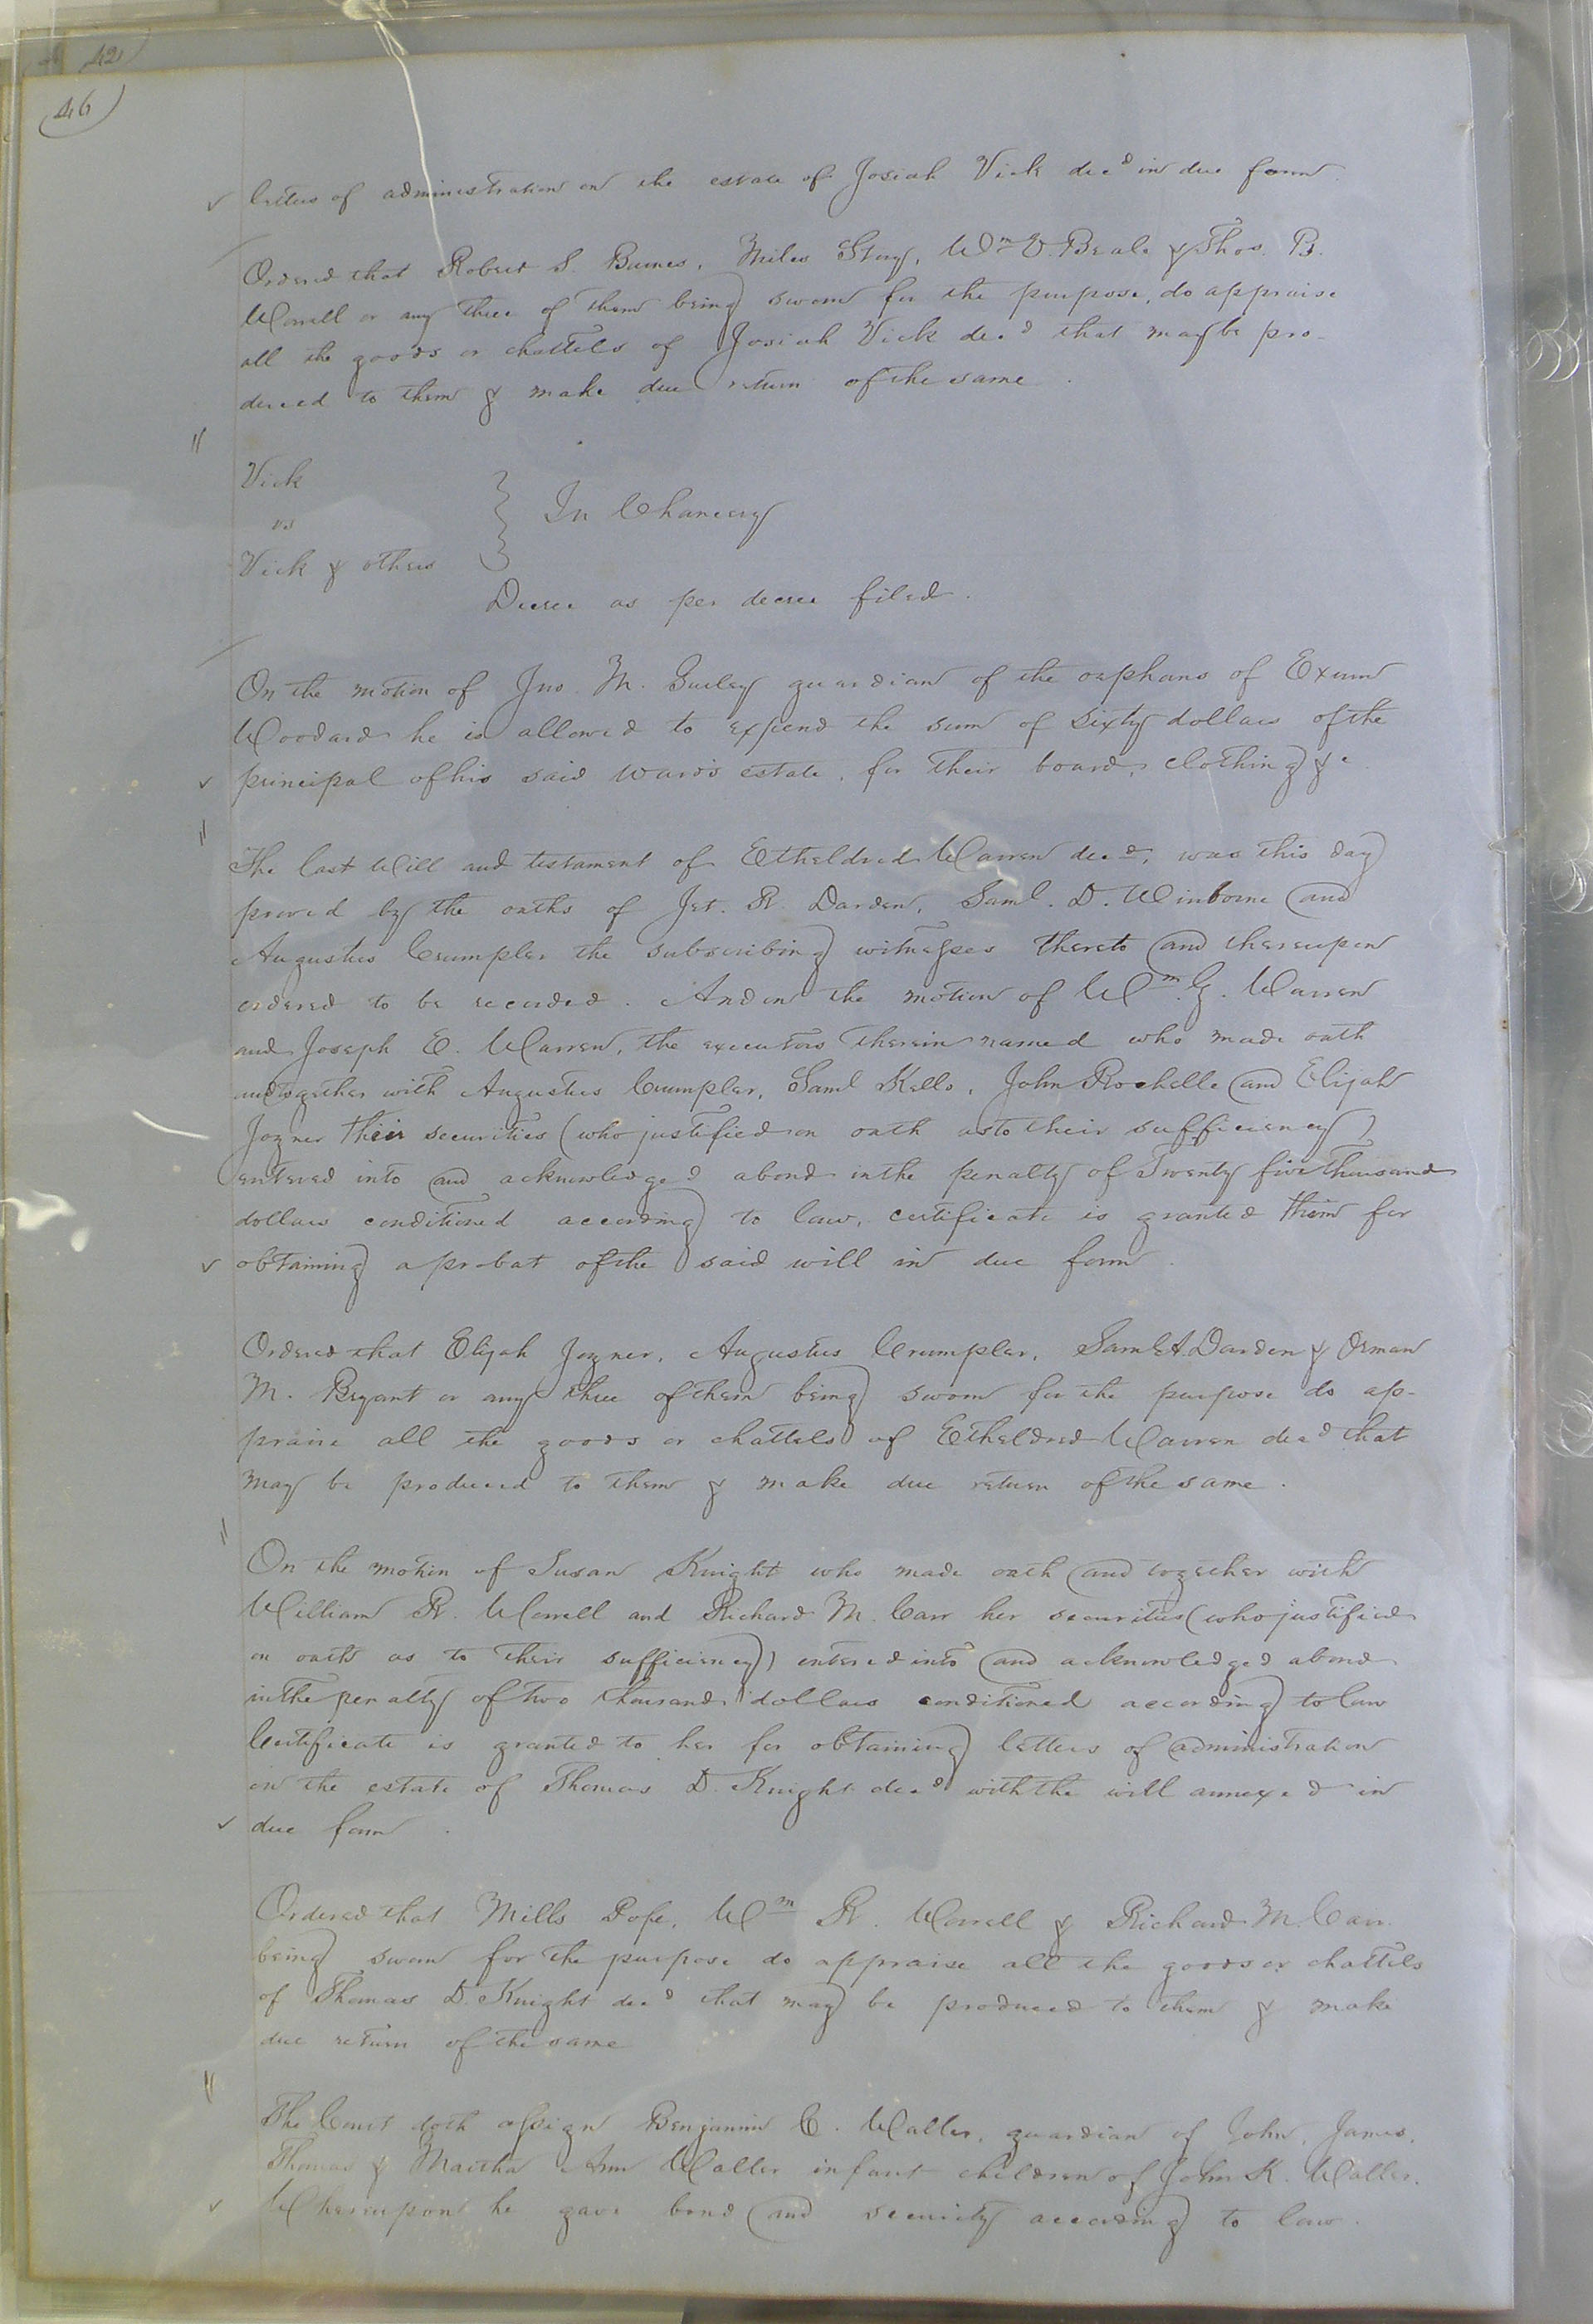 42
46
letters of administration on the estate of Josiah Vick decd in due form
Ordered that Robert S. Barnes, Miles Story, Wm V. Beale & Thos. B.
Worrell or any three of them being sworn for the purpose, do appraise
all the goods or chattels of Josiah Vick decd that may be pro-
duced to them & make due return of the same.
Vick
vs
Vick & others
In Chancery
Decree as per decree filed.
On the motion of Jno. M. Gurley guardian of the orphans of Exum
Woodard he is allowed to expend the sum of sixty dollars of the
principal of his said wards estate, for their board, clothing &c
The last Will and testament of Etheldred Warren decd, was this day
proved by the oaths of Jet. R. Darden, Saml. D. Winborne and
Augustus Crumpler the subscribing witnesses thereto and thereupon
ordered to be recorded. And on the motion of Wm. G. Warren
and Joseph E. Warren, the executors therein named who made oath
and together with Augustus Crumpler, Saml Kello, John Rochelle and Elijah
Joyner their securities (who justified on oath as to their sufficiency)
entered into and acknowledged a bond in the penalty of Twenty five thousand
dollars conditioned according to law, certificate is granted them for
obtaining a probat of the said will in due form.
Ordered that Elijah Joyner, Augustus Crumpler, Saml A. Darden & Orman
M. Bryant or any three of them being sworn for the purpose do ap-
praise all the goods or chattels of Etheldred Warren decd that
may be produced to them & make due return of the same.
On the motion of Susan Knight who made oath and together with
William R. Worrell and Richard M. Carr her securities (who justified
on oath as to their sufficiency) entered into and acknowledged a bond
in the penalty of two thousand dollars conditioned according to law
Certificate is granted to her for obtaining letters of administration
on the estate of Thomas D. Knight decd with the will annexed in
due form.
Ordered that Mills Pope, Wm R. Worrell & Richard M. Carr
being sworn for the purpose do appraise all the goods or chattels
of Thomas D. Knight decd that may be produced to them & make
due return of the same
The Court doth assign Benjamin C. Waller, guardian of John, James,
Thomas & Martha Ann Waller infant children of John K. Waller.
Whereupon he gave bond and security according to law.